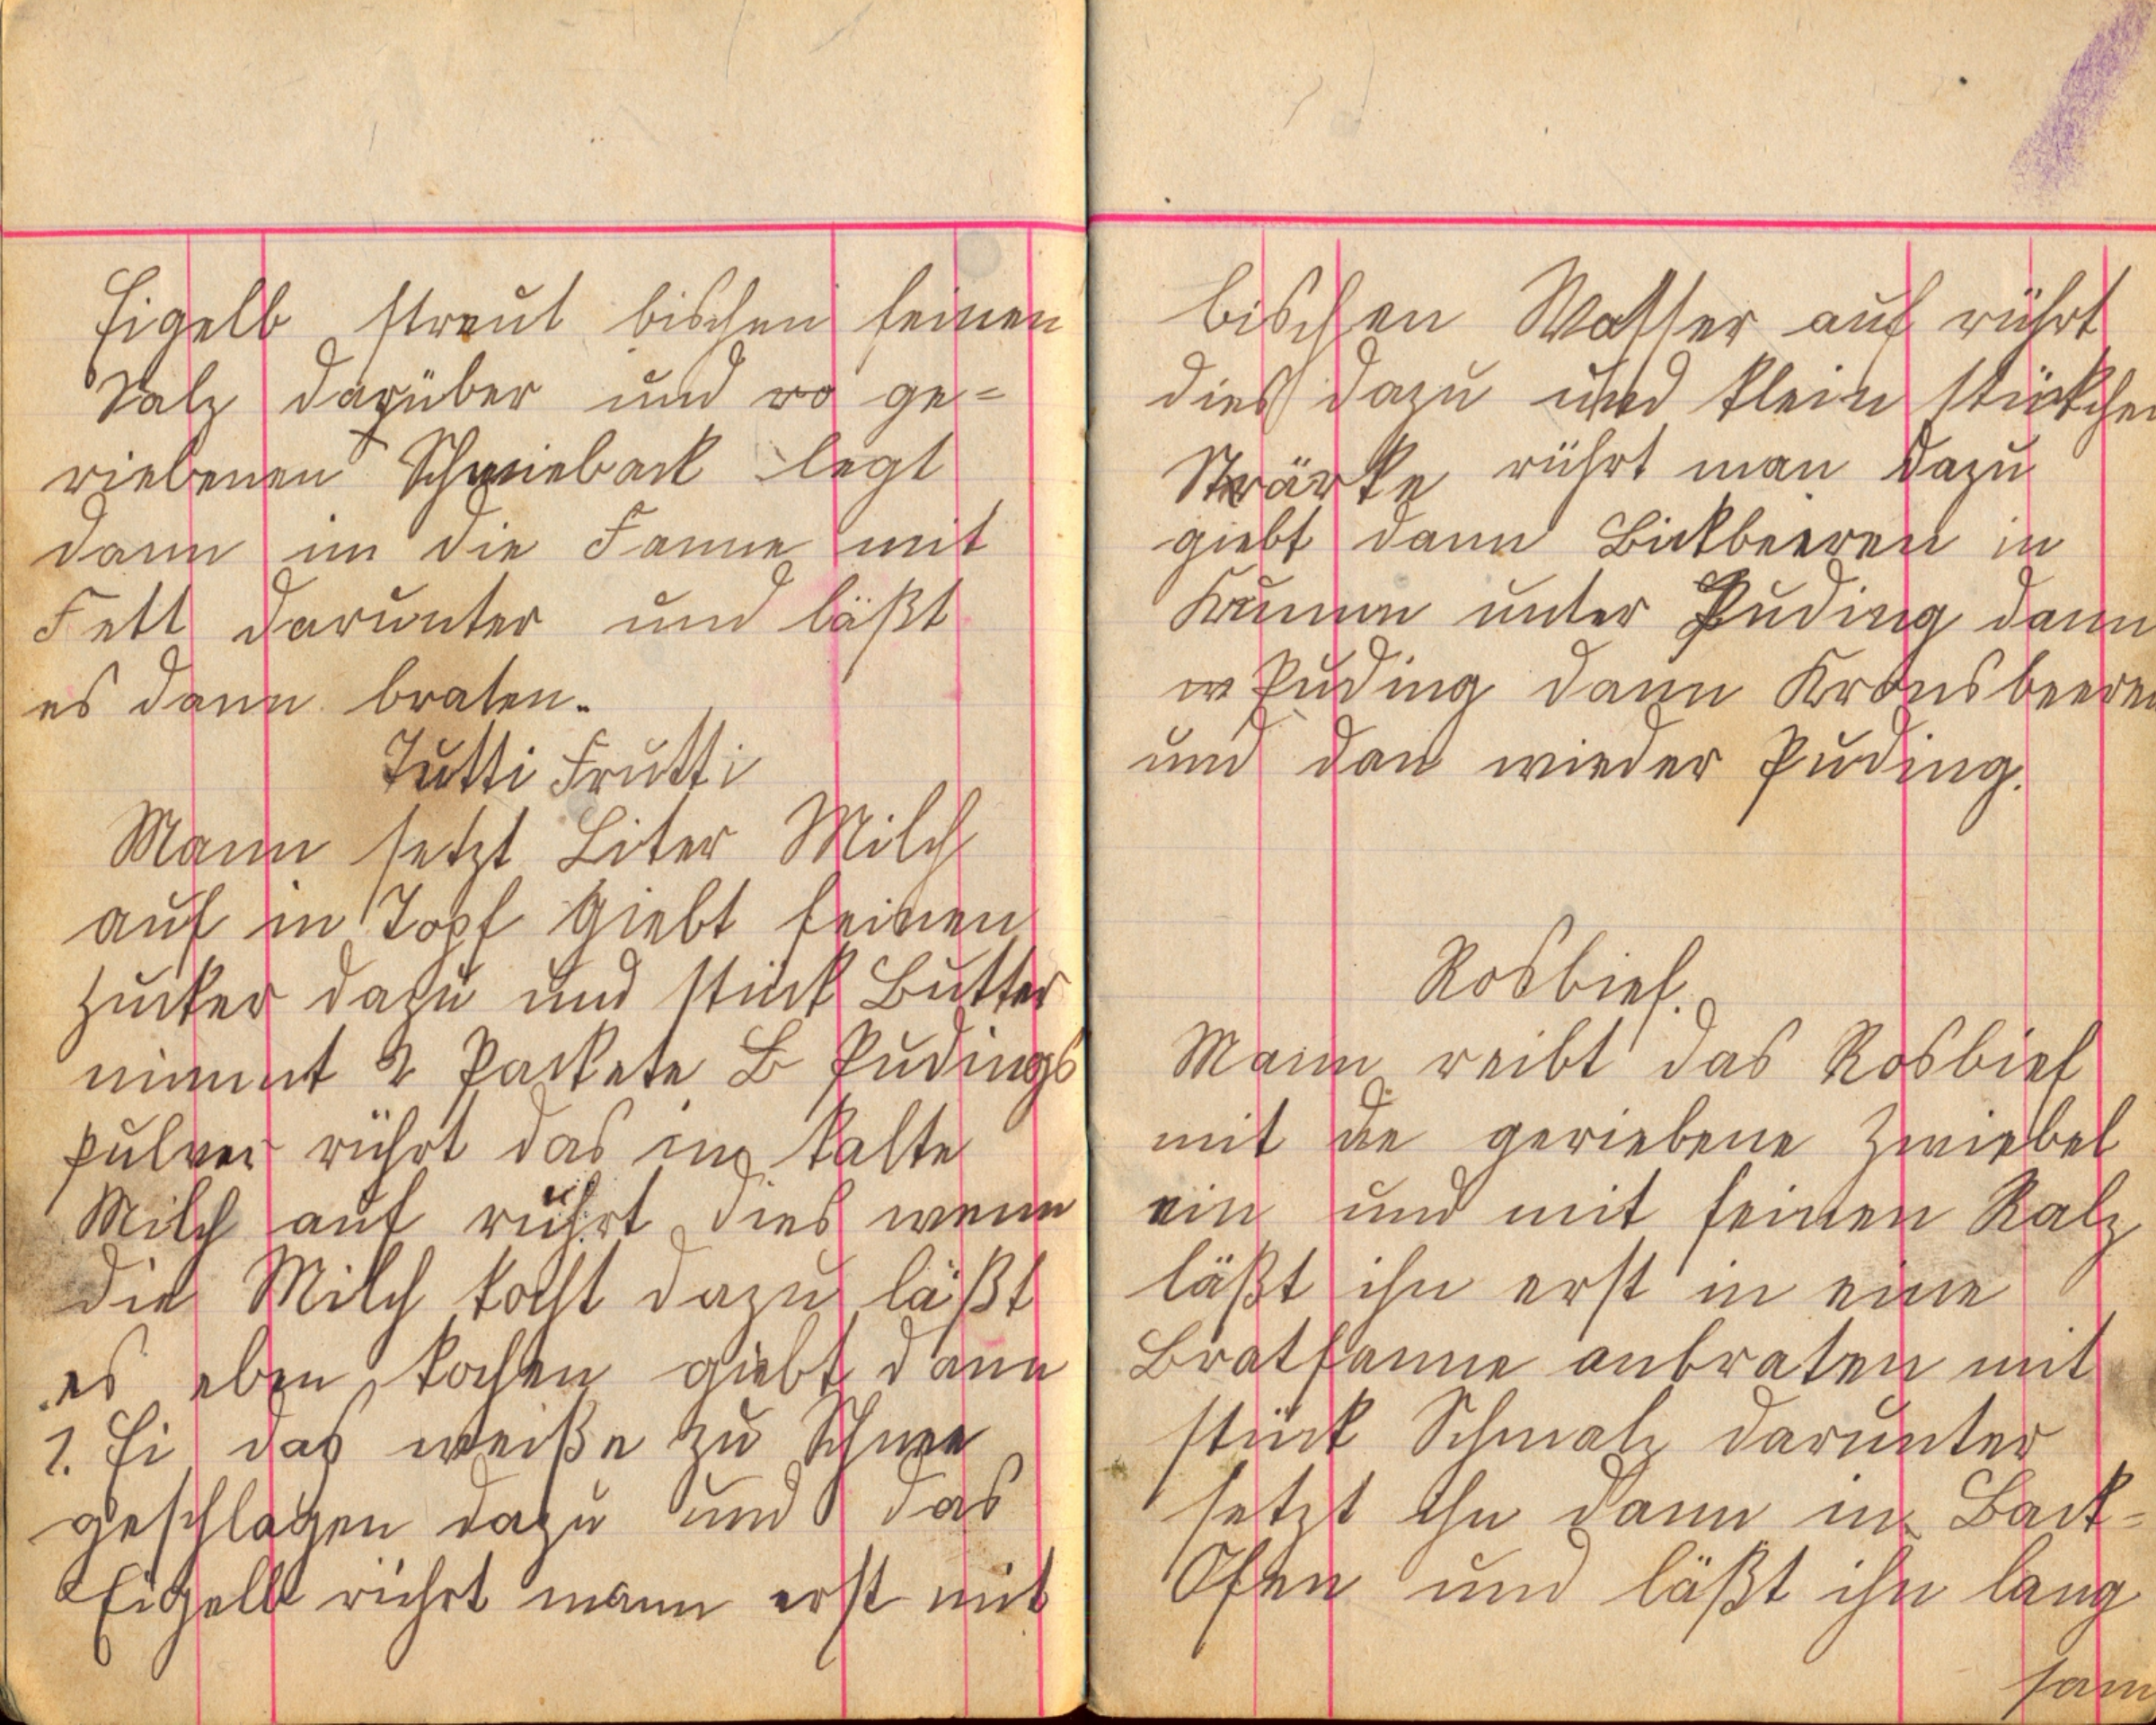 Eigelb streut bischen feinen
Salz darüber und ge=
riebenen Schwieback legt
dann im die Fanne mit
Fett darunter und läßt
es dann braten.
Tutti Frutti
Mann setzt Liter Milch
auf in Topf Giebt feinen
Zucker dazu und stück Butter
nimmt 2 Packete Pudings
pulver rührt das im kalte
Milch auf rührt dies wenn
die Milch kocht dazu läßt
es eben kochen giebt dann
1. Ei das weiße zu Schnee
geschlagen dazu und das
Eigelb rührt mann erst mit
bischen Wasser auf rührt
dies dazu und klein stückchen
Stärke rührt man dazu
giebt dann Bickbeeren in
unter Puding dann
Puding dann Kronsbeeren
und dan wieder Puding.
Rosbief.
Mann reibt das Rosbief
mit de geriebene Zwiebel
ein und mit feinen Salz
läßt ihn erst in eine
Bratfanne anbraten mit
stück Schmalz darunter
setzt ihn dann in Back=
Ofen und läßt ihn lang
sam